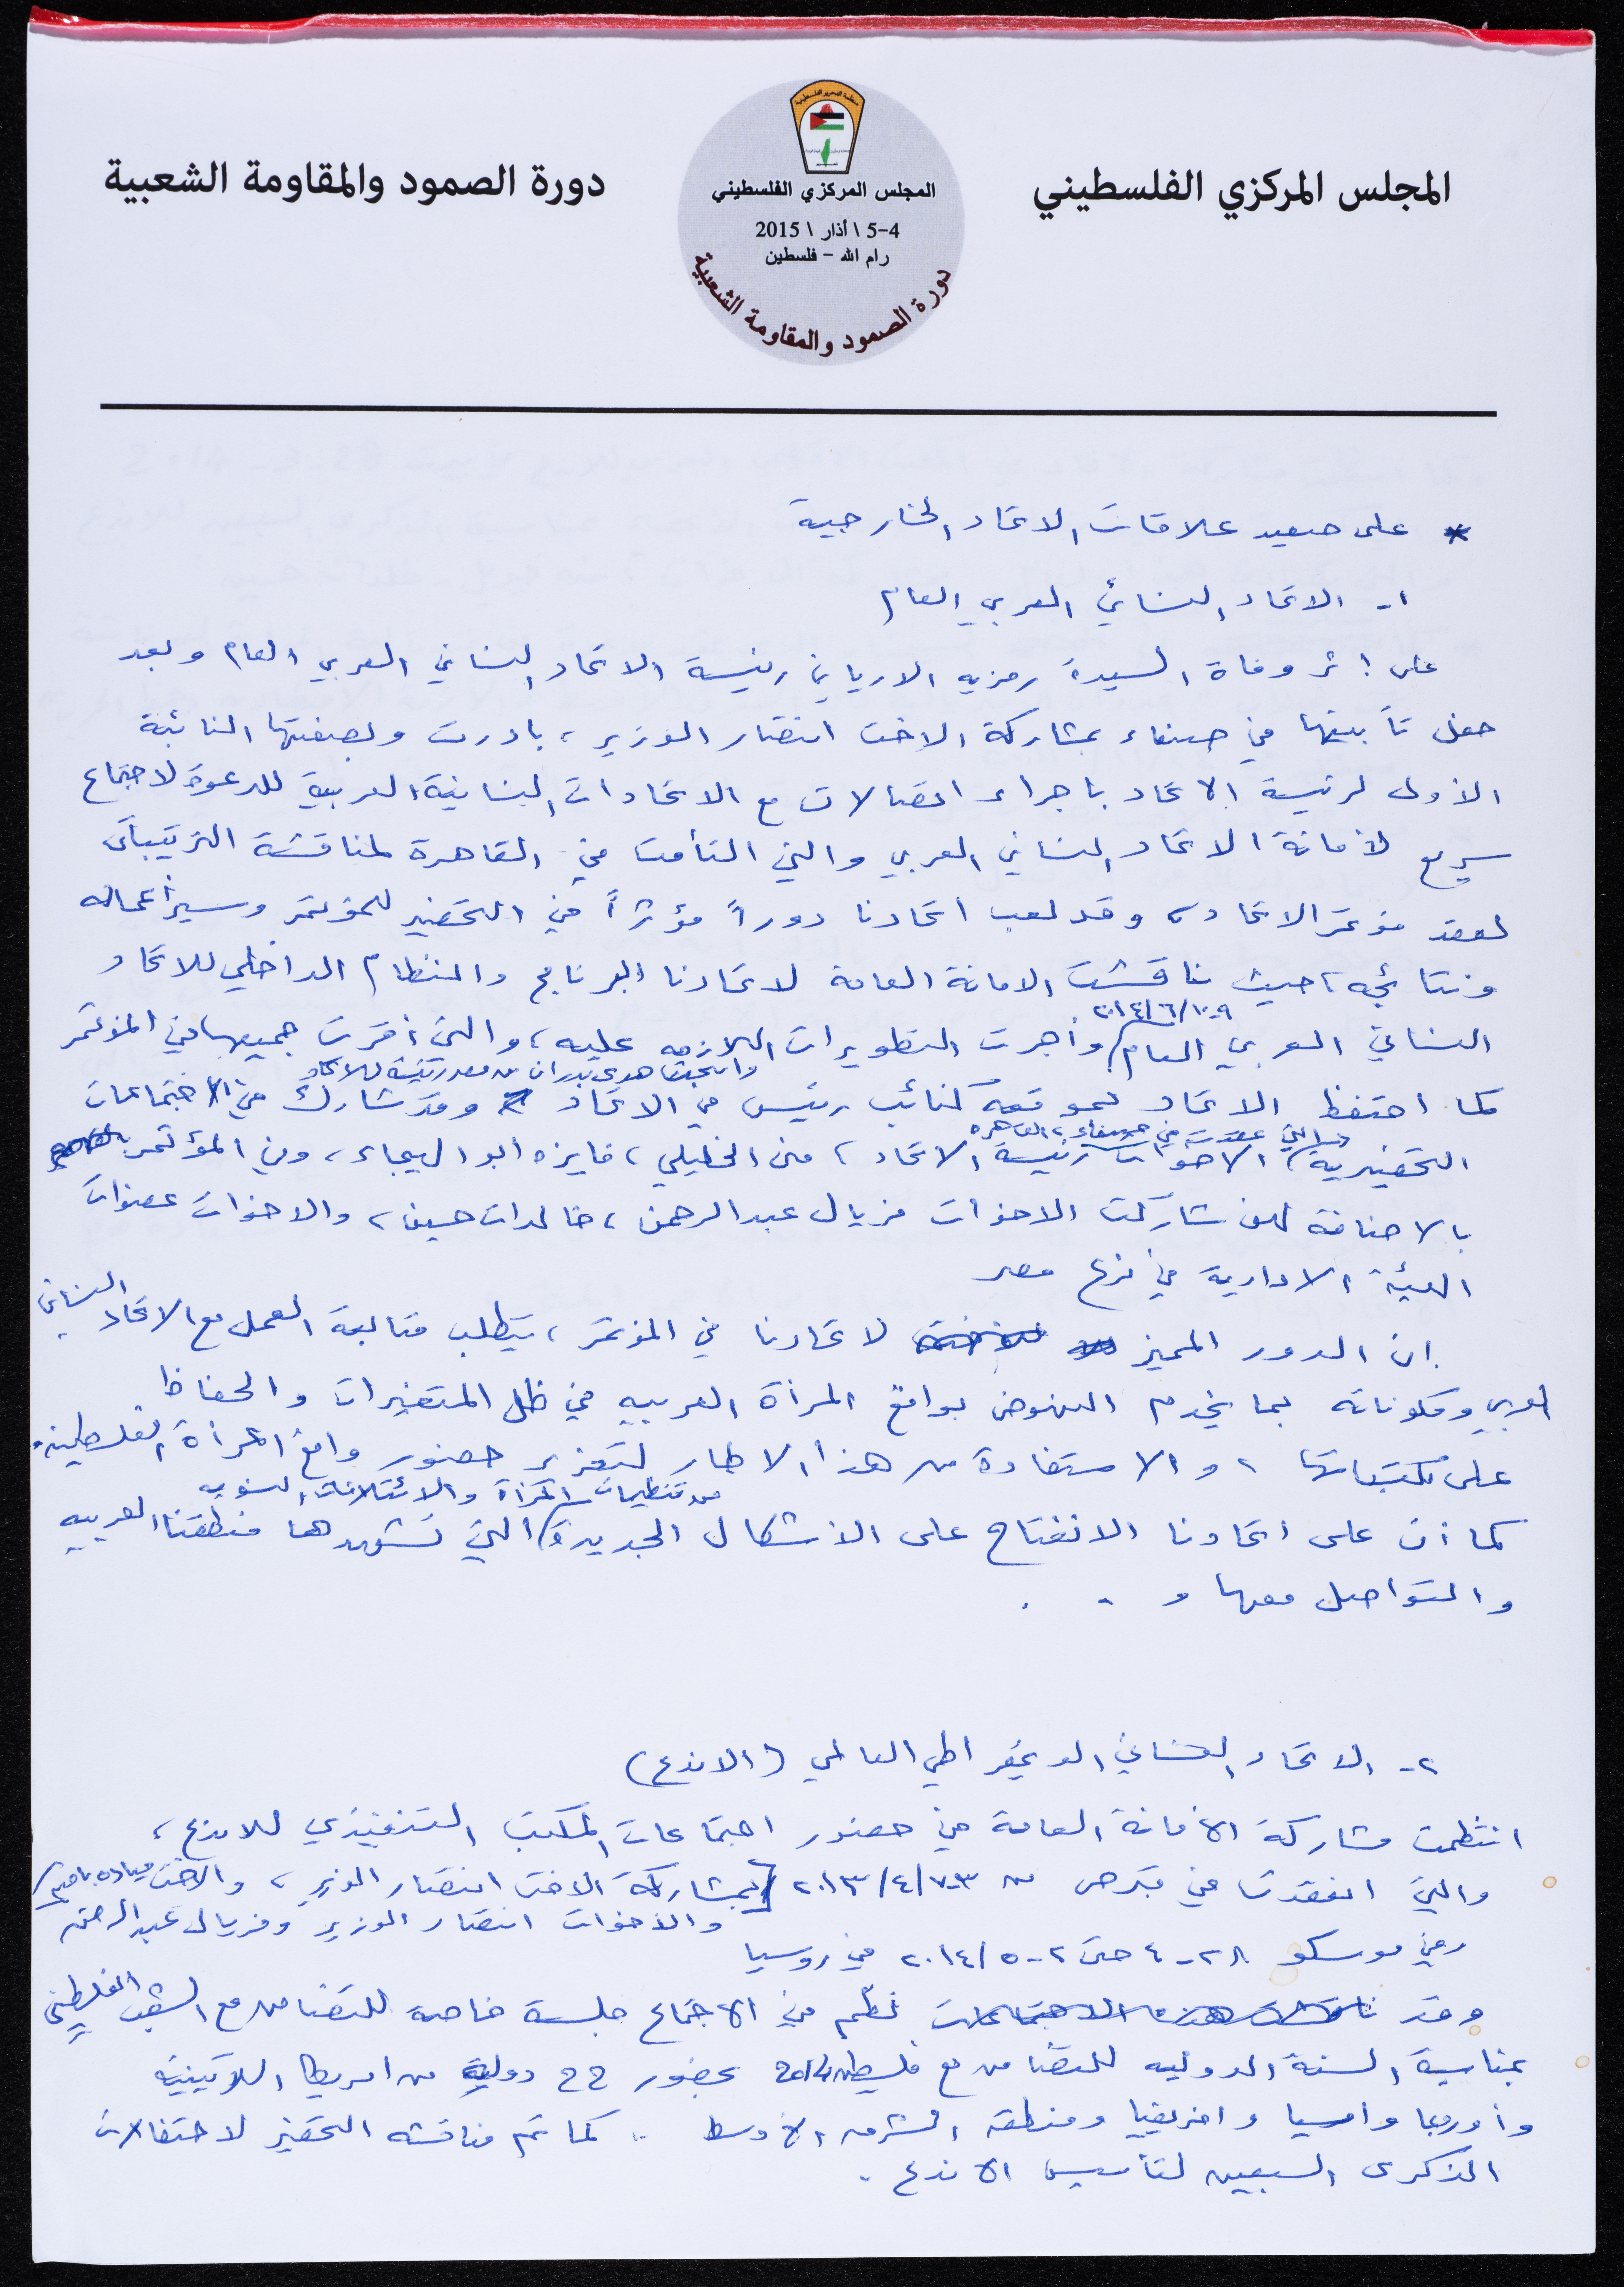 المجلس المركزي الفلسطيني
منظمة التحرير الفلسطينية
المجلس المركزي الفلسطيني
4-5 \ أذار \ 2015
رام الله - فلسطين
دورة الصمود والمقاومة الشعبية
دورة الصمود والمقاومة الشعبية
* على صعيد علاقات الاتحاد الخارجية
١- الاتحاد النسائي العربي العام
على إثر وفاة السيدة رمزيه الارياني رئيسة الاتحاد النسائي العربي العام وبعد
حفل تأبينها في صنعاء بمشاركة الاخت انتصار الوزير، بادرت وبصفتها النائبة
الأولى لرئيسة الاتحاد باجراء اتصالات مع الاتحادات النسائية العربية للدعوة لاجتماع
سريع لأمانة الاتحاد النسائي العربي والتي التأمت في القاهرة لمناقشة الترتيبات
لعقد مؤتمر الاتحاد، وقد لعب اتحادنا دوراً مؤثراً في التحضير للمؤتمر وسير أعماله
ونتائجه، حيث ناقشت الامانة العامة لاتحادنا البرنامج والنظام الداخلي للاتحاد
٩-١٠/٦/٢٠١٤
النسائي العربي العام وأجرت التطويرات اللازمه عليه، والتي أقرت جميعها في المؤتمر
وانتخبت هدى بدران من مصر رئيسة للاتحاد
كما احتفظ الاتحاد بموقعه كنائب رئيس في الاتحاد وقد شارك في الاجتماعات
والتي عقدت في صنعاء، القاهره
التحضيرية الاخوات رئيسة الاتحاد، منى الخليلي، فايزه ابو الهيجاء، وفي المؤتمر
بالاضافة لهن شاركت الاخوات فريال عبد الرحمن، خالدات حسين، والاخوات عضوات
الهيئة الادارية في فرع مصر
ان الدور المميز لاتحادنا في المؤتمر، يتطلب متابعة العمل مع الاتحاد النسائي
العربي ومكوناته بما يخدم النهوض بواقع المرأة العربيه في ظل المتغيرات والحفاظ
على مكتسباتها، والاستفادة من هذا الاطار لتعزيز حضور واقع المرأة الفلسطينية.
من تنظيمات المرأة والائتلافات النسويه
كما أن على اتحادنا الانفتاح على الأشكال الجديدة التي تشهدها منطقتنا العربيه
والتواصل معها و . .
٢- الاتحاد النسائي الديمقراطي العالمي (الاندع)
انتظمت مشاركة الأمانة العامة في حضور اجتماعات المكتب التنفيذي للاندع،
والتي انعقدت في قبرص من ٣-٧/٤/٢٠١٣ بمشاركة الاخت انتصار الوزير، والاخت مياده بامية
والأخوات انتصار الوزير وفريال عبد الرحمن
وفي موسكو ٢٨-٤ حتى ٢-٥/٢٠١٤ في روسيا
وقد ناقشت هذه الاجتماعات نظم في الاجتماع جلسة خاصة للتضامن مع الشعب الفلسطيني
بمناسبة السنة الدوليه للتضامن مع فلسطين 2014 بحضور 22 دولية من امريكا اللاتينية
وأوروبا وآسيا وافريقيا ومنطقة الشرق الأوسط . كما تم مناقشه التحضير لاحتفالات
الذكرى السبعين لتأسيس الاندع .